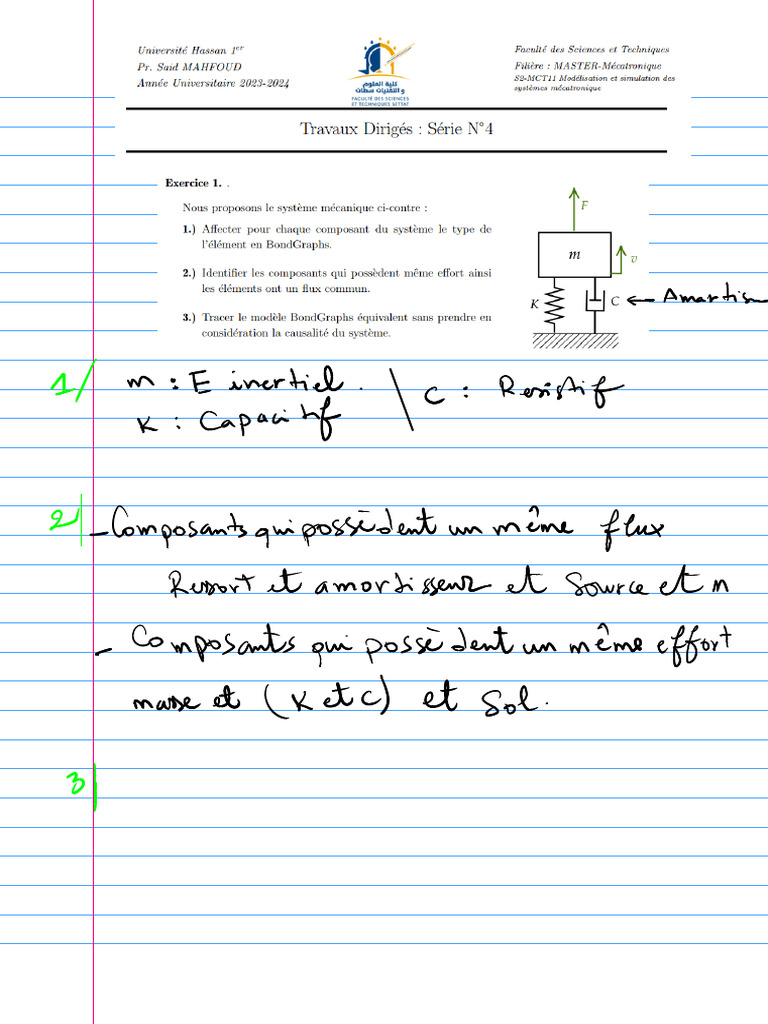 Université Hassan 1er
Pr. Said MAHFOUD
Année Universitaire 2023-2024
كلية العلوم
و التقنيات سطات
FACULTÉ DES SCIENCES
ET TECHNIQUES SETTAT
Faculté des Sciences et Techniques
Filière : MASTER-Mécatronique
S2-MCT11 Modélisation et simulation des
systèmes mécatronique
Travaux Dirigés : Série N°4
Exercice 1. .
Nous proposons le système mécanique ci-contre :
1.) Affecter pour chaque composant du système le type de
l'élément en BondGraphs.
2.) Identifier les composants qui possèdent même effort ainsi
les éléments ont un flux commun.
3.) Tracer le modèle BondGraphs équivalent sans prendre en
considération la causalité du système.
F
m
v
K
C ← Amartism
1/ m : E inertiel.
K : Capacitif
C : Resistif
2/ - Composants qui possèdent un même flux
Ressort et amortisseur et source et m
- Composants qui possèdent un même effort
masse et (K et C) et sol.
3/